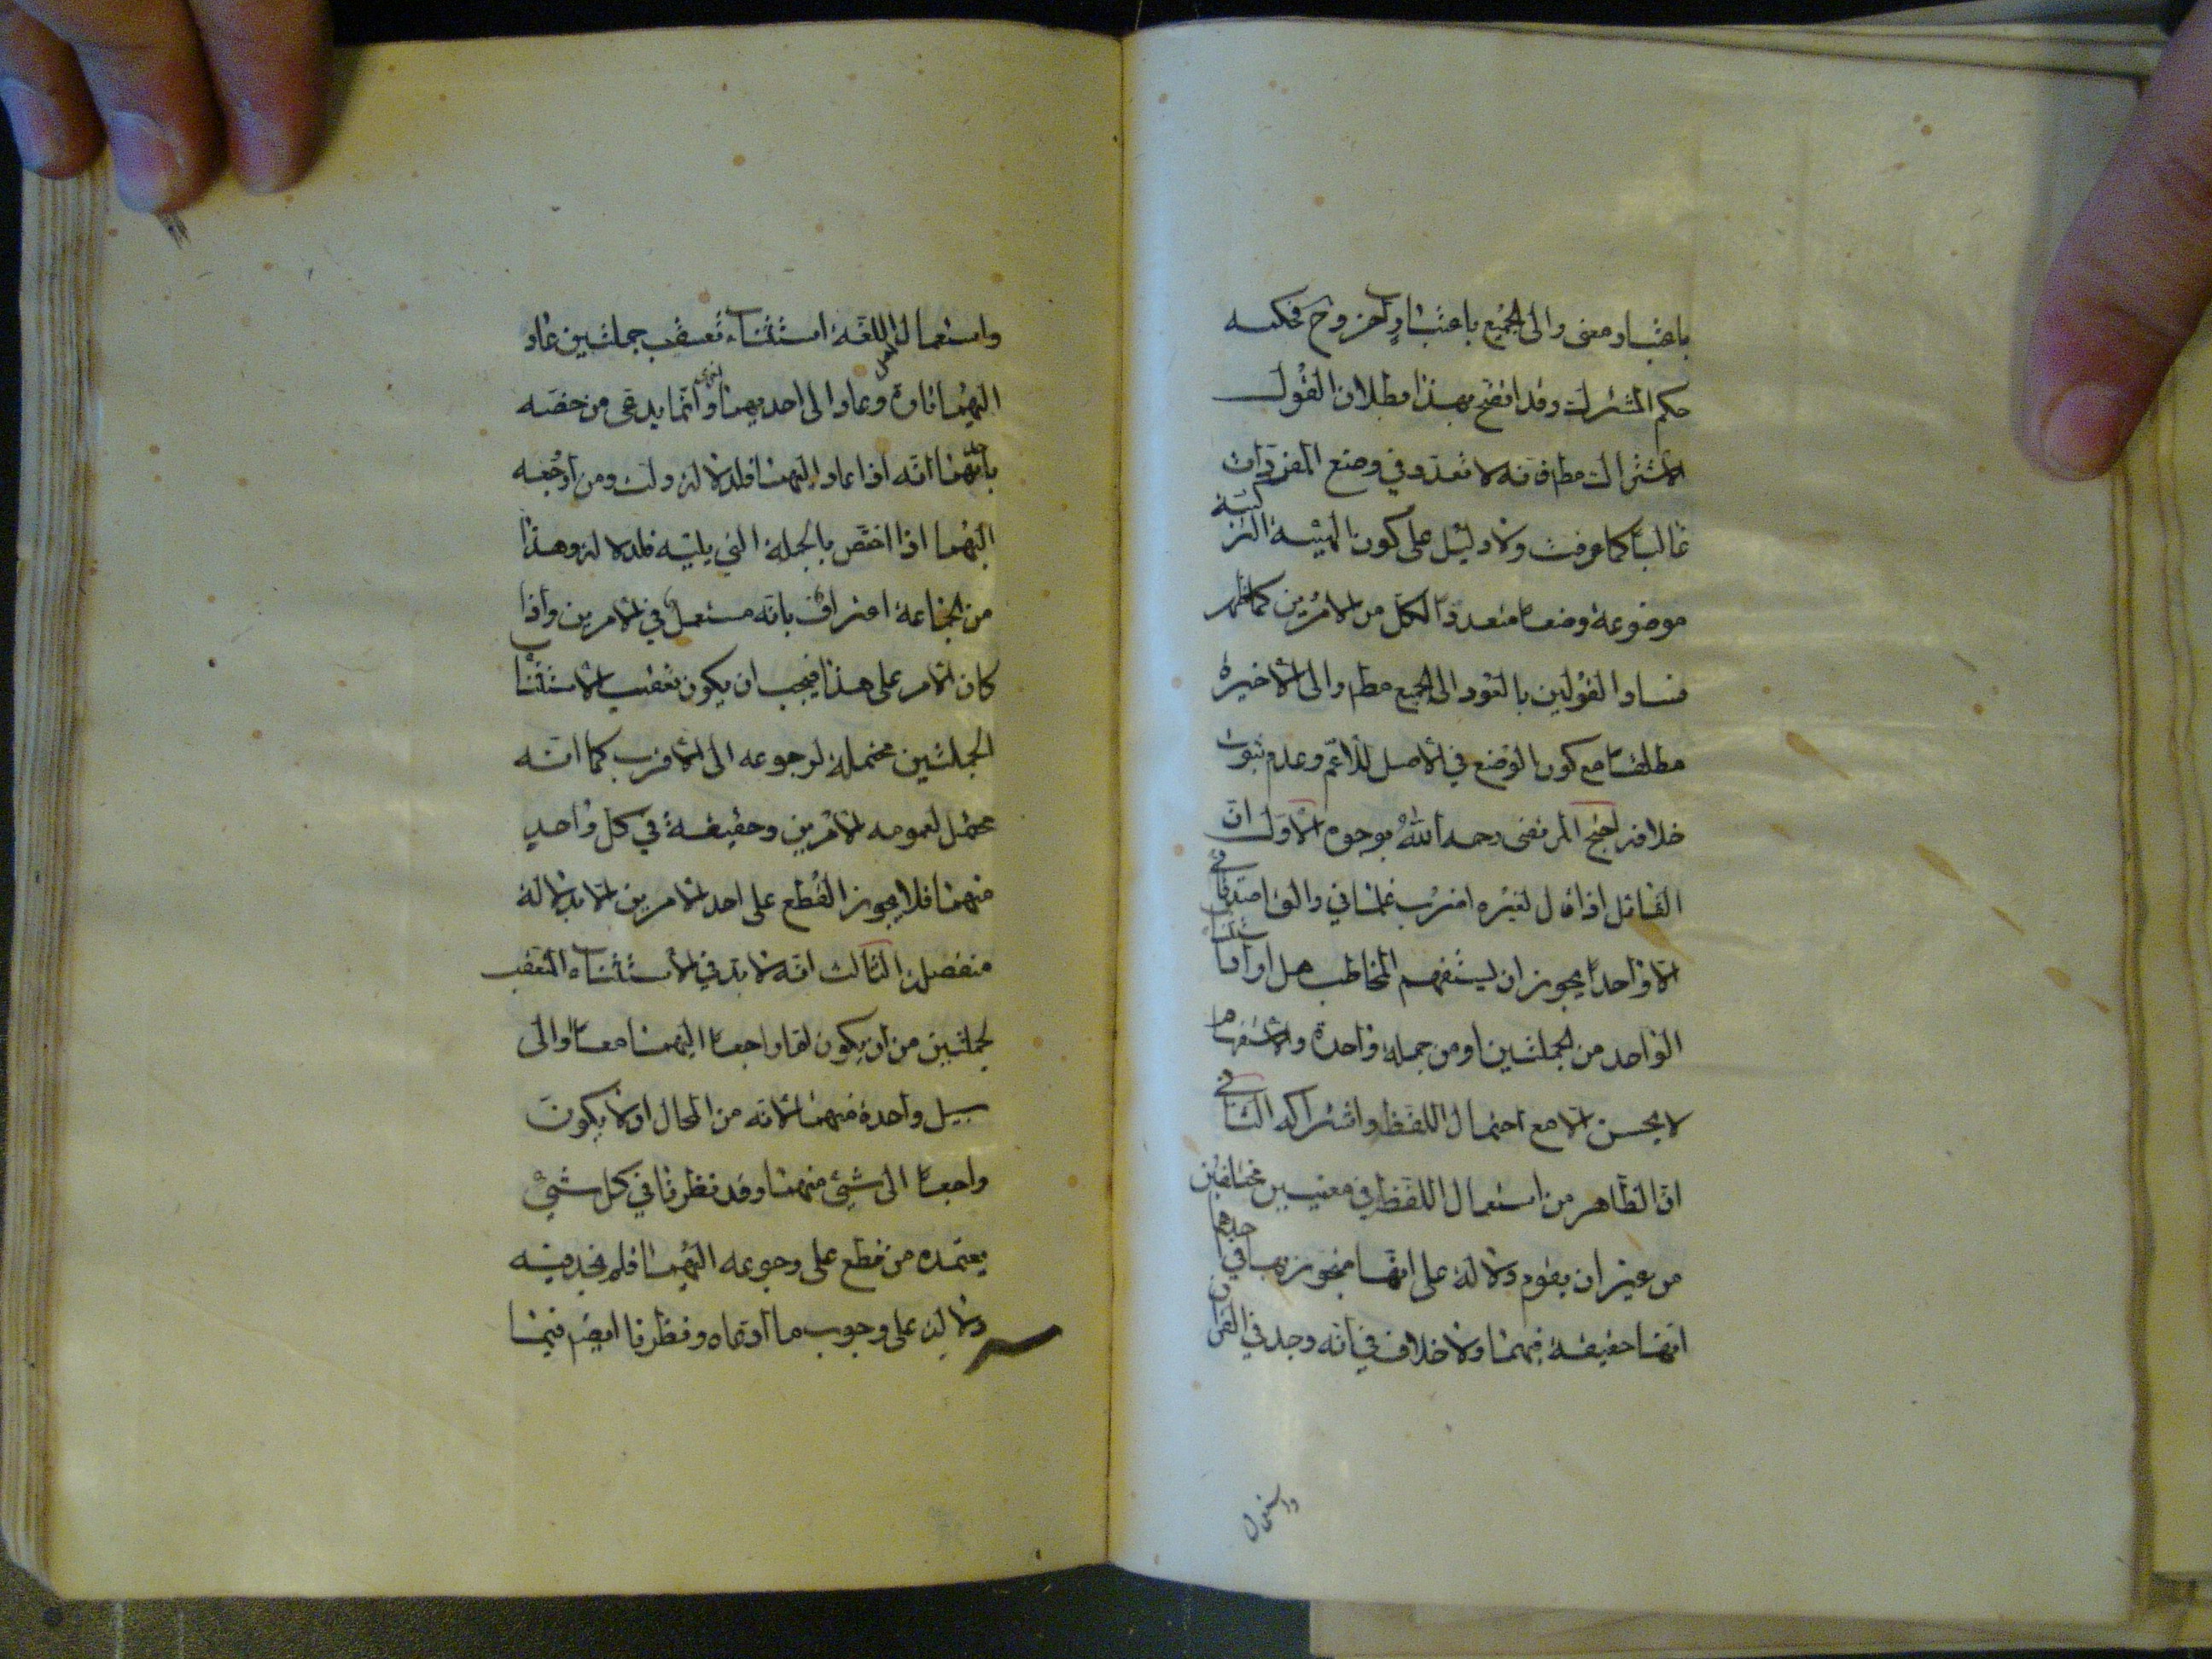 باعتبار معنى والى الجميع باعتبار آخر وح فحكمه
حكم المشترك وقد اتضح بهذا بطلان القول
بالاشتراك مطم فانه لا تعدد في وضع المفردات
غالبا كما عرفت ولا دليل على كون الهيئة التركيبية
موضوعة وضعا متعددا لكل من الامرين كما ظهر
فساد القولين بالعود الى الجميع مطم والى الاخيرة
مطلقا مع كون الوضع في الاصل للاعم وعدم ثبوت
خلافه احتج المرتضى رحمه الله بوجوه الاول ان
القائل اذا قال لغيره اضرب غلماني والق اصدقائي
الا واحدا يجوز ان يستفهم المخاطب هل اراد استثناء
الواحد من الجملتين او من جملة واحدة والاستفهام
لا يحسن الا مع احتمال اللفظ واشتراكه الثاني
ان الظاهر من استعمال اللفظ في معنيين مختلفين
من غير ان يقوم دلالة على انها متجوز بها في احدهما
انها حقيقة فيهما ولا خلاف في انه وجد في القرآن
واستعمال
واستعمال اهل اللغة استثناء تعقب جملتين عاد
اليهما تارة وعاد الى احديهما اخرى وانما يدعى من خصه
باحديهما انه اذا عاد اليهما فلدلالة دلت ومن ارجعه
اليهما اذا اختص بالجملة التي يليه فلدلالة وهذا
من الجماعة اعتراف بانه مستعمل في الامرين واذا
كان الامر على هذا فيجب ان يكون تعقيب الاستثناء
الجملتين محتملة لرجوعه الى الاقرب كما انه
محتمل لعمومه للامرين وحقيقة في كل واحد
منهما فلا يجوز القطع على احد الامرين الا بدلالة
منفصلة الثالث انه لا بد في الاستثناء المتعقب
لجملتين من ان يكون اما راجعا اليهما معا والى
سبيل واحدة منهما لانه من المحال ان لا يكون
راجعا الى شيئ منهما وقد نظرنا في كل شيئ
يعتمده من قطع على رجوعه اليهما فلم نجد فيه
دلالة على وجوب ما ادعاه ونظرنا ايضم فيما